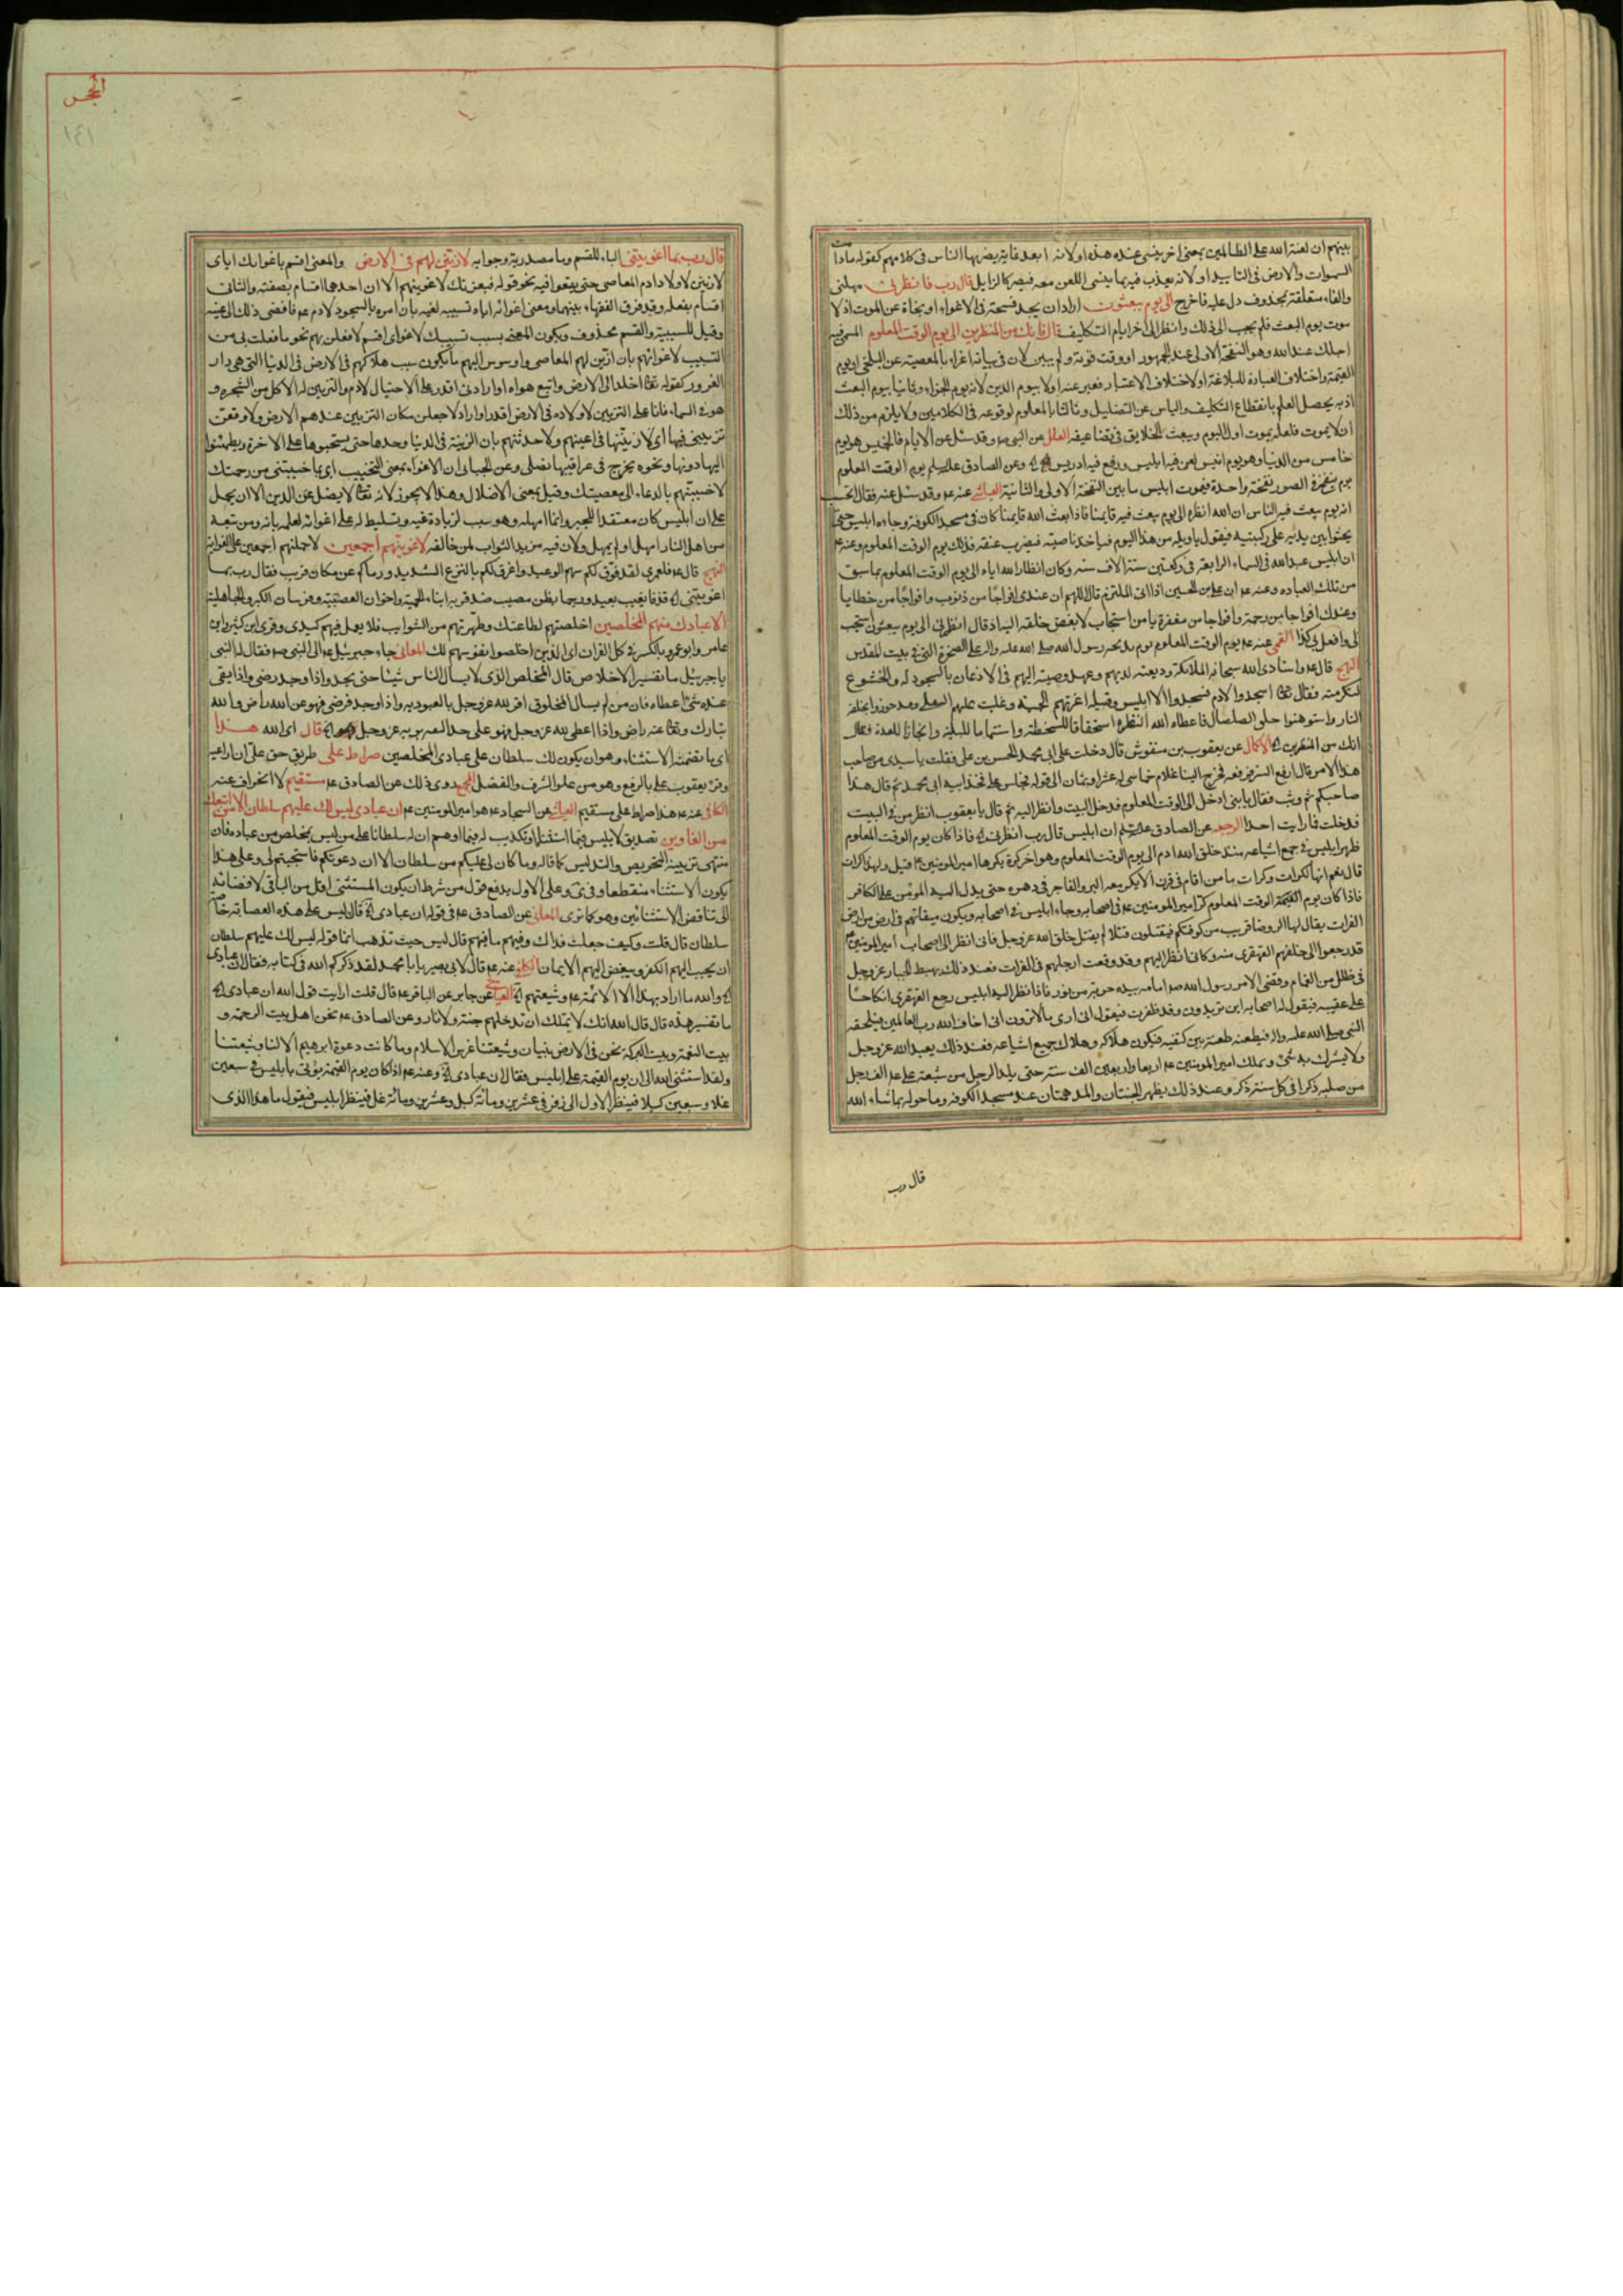 الحجر
١٤١
بينهم ان لعنة الله على الظالمين بمعنى اخر ينسى عنده هذه او لانه ابعد غاية يضربها الناس في كلامهم كقوله مادامت
السموات والارض في التابيد او لانه يعذب فيه بما ينسى اللعن معه فيصير كالزايل قال رب فانظرني مهلنى
والفاء متعلقة بمحذوف دل عليه فاخرج الى يوم يبعثون اراد ان يجد فسحة في الاغواء او نجاة عن الموت اذ لا
موت يوم البعث فلم يجب الى ذلك وانظر الى اخر ايام التكليف قال فانك من المنظرين الى يوم الوقت المعلوم المسمى فيه
اجلك عند الله وهو النفخة الاولى عند الجمهور او وقت قوته ولم يبين لان في بيانه اغراء بالمعصية عن البلخى او يوم
القيمة واختلاف العبادة للبلاغة او لاختلاف الاعتبار فعبر عنه اولا بيوم الدين لانه يوم الجزاء وثانيا بيوم البعث
اذ به يحصل العلم بانقطاع التكليف والياس عن التضليل وثالثا بالمعلوم لوقوعه في الكلامين ولا يلزم من ذلك
ان لا يموت فلعله يموت اول اليوم ويبعث الخلايق في تضاعيفه العلل عن النبى ص وقد سئل عن الايام فالخميس هو يوم
خامس من الدنيا وهو يوم انيس لعن فيه ابليس ورفع فيه ادريس وعن الصادق عليه السلم يوم الوقت المعلوم
يوم ينفخ في الصور نفخة واحدة فيموت ابليس ما بين النفخة الاولى والثانية العياشى عنه ع وقد سئل عنه فقال اتحسب
انه يوم يبعث فيه الناس ان الله انظره الى يوم يبعث فيه قايمنا فاذا بعث الله قايمنا كان في مسجد الكوفة وجاءه ابليس حتى
يجثو بين يديه على ركبتيه فيقول يا ويله من هذا اليوم فياخذ ناصيته فيضرب عنقه فذلك يوم الوقت المعلوم وعنه ع
ان ابليس عبد الله في السماء الرابعة في ركعتين ستة الاف سنة وكان انظار الله اياه الى يوم الوقت المعلوم بما سبق
من تلك العباده وعنه ع ان على بن الحسين اذا اتى الملتزم قال اللهم ان عندى افواجا من ذنوب وافواجا من خطايا
وعندك افواجا من رحمة وافواجا من مغفرة يا من استجاب لابغض خلقه اليه اذ قال انظرنى الى يوم يبعثون استجب
لى وافعل بى كذا القمى عنه ع يوم الوقت المعلوم يوم يذبحه رسول الله صلى الله عليه واله على الصخرة التى في بيت المقدس
النهج قال ع واستادى الله سبحانه الملائكة وديعته لديهم وعهد وصيته اليهم في الاذعان بالسجود له والخشوع
لتكرمته فقال تعالى اسجدوا لادم فسجدوا الا ابليس وقبيله اعترتهم الحمية وغلبت عليهم الشقوة وتعززوا بخلقة
النار واستوهنوا خلق الصلصال فاعطاه الله النظرة استحقاقا للسخطة واستتماما للبلية وانجازا للعدة فقال
انك من المنظرين الاكمال عن يعقوب بن منقوش قال دخلت على ابى محمد الحسن بن على فقلت يا سيدى من صاحب
هذا الامر قال ارفع الستر فرفعه فخرج الينا غلام خماسى له عشر او ثمان الى قوله فجلس على فخذ ابيه ابى محمد ثم قال هذا
صاحبكم ثم وثب فقال يا بنى ادخل الى الوقت المعلوم فدخل البيت وانظر اليه ثم قال يا يعقوب انظر من في البيت
فدخلت فما رايت احدا الرجعه عن الصادق عليه السلم ان ابليس قال رب انظرنى فاذا كان يوم الوقت المعلوم
ظهر ابليس في جميع اشياعه منذ خلق الله ادم الى يوم الوقت المعلوم وهو اخر كرة يكرها امير المومنين ع قيل ولها كرات
قال نعم انها لكرات وكرات ما من امام في قرن الا يكر معه البر والفاجر في دهره حتى يدل الله المومن على الكافر
فاذا كان يوم الوقت المعلوم كر امير المومنين ع في اصحابه وجاء ابليس في اصحابه ويكون ميقاتهم في ارض من اراضى
الفرات يقال لها الروحا قريب من كوفتكم فيقتتلون قتلا لم يقتل خلق الله عز وجل فانى انظر الى اصحاب امير المومنين ع
قد رجعوا الى خلفهم القهقرى مئة وكانى انظر اليهم وقد وقعت ارجلهم في الفرات فعند ذلك يهبط الجبار عز وجل
في ظلل من الغمام وقضى الامر رسول الله ص امامه بيده حربة من نور فاذا نظر اليه ابليس رجع القهقرى ناكصا
على عقبيه فيقول له اصحابه اين تريد ون وقد ظفرت فيقول انى ارى ما لا ترون انى اخاف الله رب العالمين فيلحقه
النبى صلى الله عليه واله فيطعنه طعنة بين كتفيه فيكون هلاكه وهلاك جميع اشياعه فعند ذلك يعبد الله عز وجل
ولا يشرك به شئ ويملك امير المومنين ع اربعا واربعين الف سنة حتى يلد الرجل من شيعة على ع الف رجل
من صلبه ذكرا في كل سنة ذكر وعند ذلك يظهر الجنتان والمدهمتان عند مسجد الكوفة وما حوله بما شاء الله
قال رب
قال رب بما اغويتنى الباء للقسم وما مصدرية وجوابه لازينن لهم في الارض والمعنى اقسم باغوائك اياى
لازينن لاولاد ادم المعاصى حتى يقعوا فيه نحو قوله فبعزتك لاغوينهم الا ان احدهما اقسام بصفته والثانى
اقسام بفعله وقد فرق الفقهاء بينهما ومعنى اغوائه اياه تسبيبه لغيه بان امره بالسجود لادم ع فافضى ذلك الى غيه
وقيل للسببية والقسم محذوف ويكون المعنى بسبب تسبيبك لاغواى اقسم لافعلن بهم نحو ما فعلت بى من
التسبيب لاغوائهم بان ازين لهم المعاصى واوسوس اليهم ما يكون سبب هلاكهم في الارض في الدنيا التى هى دار
الغرور كقوله تعالى اخلد الى الارض واتبع هواه او اراد انى اقدر على الاحتيال لادم والتزيين له الاكل من الشجرة و
هو في السماء فانا على التزيين لاولاده في الارض اقدر او اراد لاجعلن مكان التزيين عندهم الارض ولاوقعن
تزيينى فيها اى لازيننها في اعينهم ولاحدثنهم بان الزينة في الدنيا وحدها حتى يستحبوها على الاخرة ويطمئنوا
اليها دونها ونحوه يخرج في عراقيبها نصلى وعن الجبائى ان الاغواء بمعنى التخييب اى بما خيبتنى من رحمتك
لاخيبنهم بالدعاء الى معصيتك وقيل بمعنى الاضلال وهذا لا يجوز لانه تعالى لا يضل عن الدين الا ان يحمل
على ان ابليس كان معتقدا للجبر وانما امهله وهو سبب لزيادة غيه وتسليط له على اغوائه لعلمه بانه ومن تبعه
من اهل النار امهل او لم يمهل ولان فيه مزيد الثواب لمن خالفه لاغوينهم اجمعين لاحملنهم اجمعين على الغواية
النهج قال ع فلعمرى لقد فوق لكم سهم الوعيد واغرق لكم بالنزع الشديد ورماكم عن مكان قريب فقال رب بما
اغويتنى قذفا بغيب بعيد ورجما بظن مصيب صدقه به ابناء الحمية واخوان العصبية وفرسان الكبر والجاهلية
الا عبادك منهم المخلصين اخلصتهم لطاعتك وطهرتهم من الشوايب فلا يعمل فيهم كيدى وقرى ابن كثير وابن
عامر وابو عمرو بالكسر في كل القران اى الذين اخلصوا نفوسهم لك المعانى جاء جبرئيل ع الى النبى ص فقال له النبى
يا جبرئيل ما تفسير الاخلاص قال المخلص الذى لا يسال الناس شيئا حتى يجد واذا وجد رضى واذا بقى
عنده شئ اعطاه فان من لم يسال المخلوق اقر لله عز وجل بالعبودية واذا وجد فرضى فهو عن الله راض والله
تبارك وتعالى عنه راض واذا اعطى لله عز وجل فهو على حد الثقه بربه عز وجل قال اى الله هذا
اى ما تضمنه الاستثناء وهو ان يكون لك سلطان على عبادى المخلصين صراط على طريق حق على ان اراعيه
وقرء يعقوب على بالرفع وهو من علو الشرف والفضل المجمع روى ذلك عن الصادق ع مستقيم لا انحراف عنه
الكافى عنه ع هذا صراط على مستقيم العياشى عن السجاد ع هو امير المومنين ع ان عبادى ليس لك عليهم سلطان الا من اتبعك
من الغاوين تصديق لابليس فيما استثناه او تكذيب له فيما اوهم ان له سلطانا على من ليس بمخلص من عباده فان
منتهى تزيينه التحريص والتدليس كما قاله وما كان لى عليكم من سلطان الا ان دعوتكم فاستجبتم لى وعلى هذا
يكون الاستثناء منقطعا وعلى الاول يدفع قول من شرط ان يكون المستثنى اقل من الباقى لافضائه
الى تناقض الاستثنائين وهو كما ترى المعانى عن الصادق ع في قوله ان عبادى قال ليس على هذه العصابة خاصة
سلطان قال قلت وكيف جعلت فداك وفيهم ما فيهم قال ليس حيث تذهب انما قوله ليس لك عليهم سلطان
ان يحبب اليهم الكفر ويبغض اليهم الايمان الكافى عنه ع قال لابى بصير يا با محمد لقد ذكركم الله في كتابه فقال ان عبادى
والله ما اراد بهذا الا الائمة ع وشيعتهم العياشى عن جابر عن الباقر ع قال قلت ارايت قول الله ان عبادى
ما تفسير هذه قال قال الله انك لا تملك ان تدخلهم جنة ولا نار وعن الصادق ع نحن اهل بيت الرحمة و
بيت النعمة وبيت البركة نحن في الارض بنيان وشيعتنا عرى الاسلام وما كانت دعوة ابرهيم الا لنا وشيعتنا
ولقد استثنى الله الى ان يوم القيمة على ابليس فقال ان عبادى وعنه ع اذا كان يوم القيمة يؤتى بابليس في سبعين
غلا وسبعين كبلا فينظر الاول الى زفر في عشرين ومائة كبل وعشرين ومائة غل فينظر ابليس فيقول ما هذا الذى